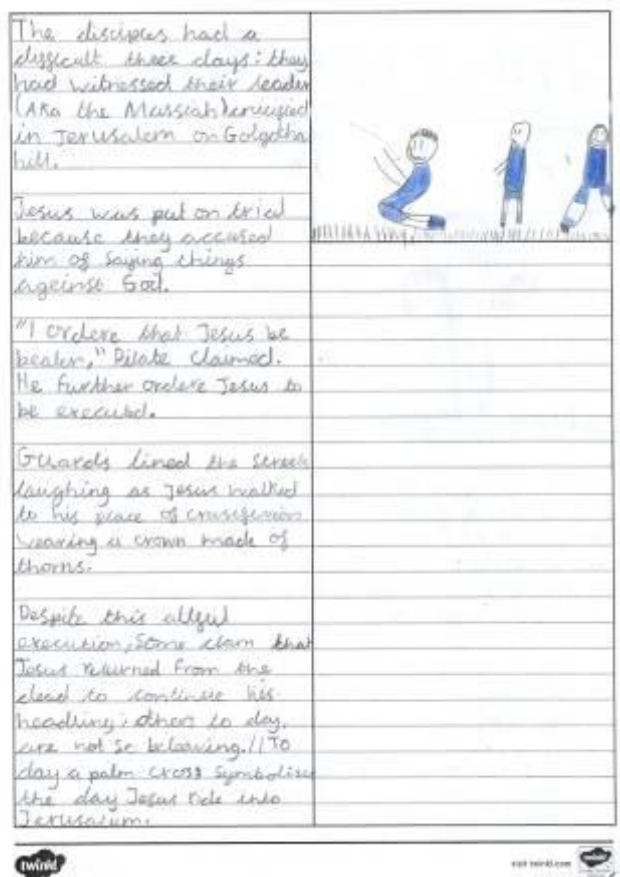 The disciples had a
difficult three days: they
had witnessed their leader
(AKa the Massiah)
in Jerusalem on Golgotha
hill.
Jesus was put on tried
because they accused
him of saying things
against God.
"I ordere that Jesus be
beaten," Pilate claimed.
He further ordere Jesus to
be executed.
Guards lined the streets
laughing as Jesus walked
to his place of
wearing a crown made of
thorns.
Despite this
execution, some clam that
Jesus returned from the
dead to continue his
others to day,
are not so beleaving.//To
day a palm cross symbolise
the day Jesus ride into
Jerusalum.
twinkl
visit twinkl.com